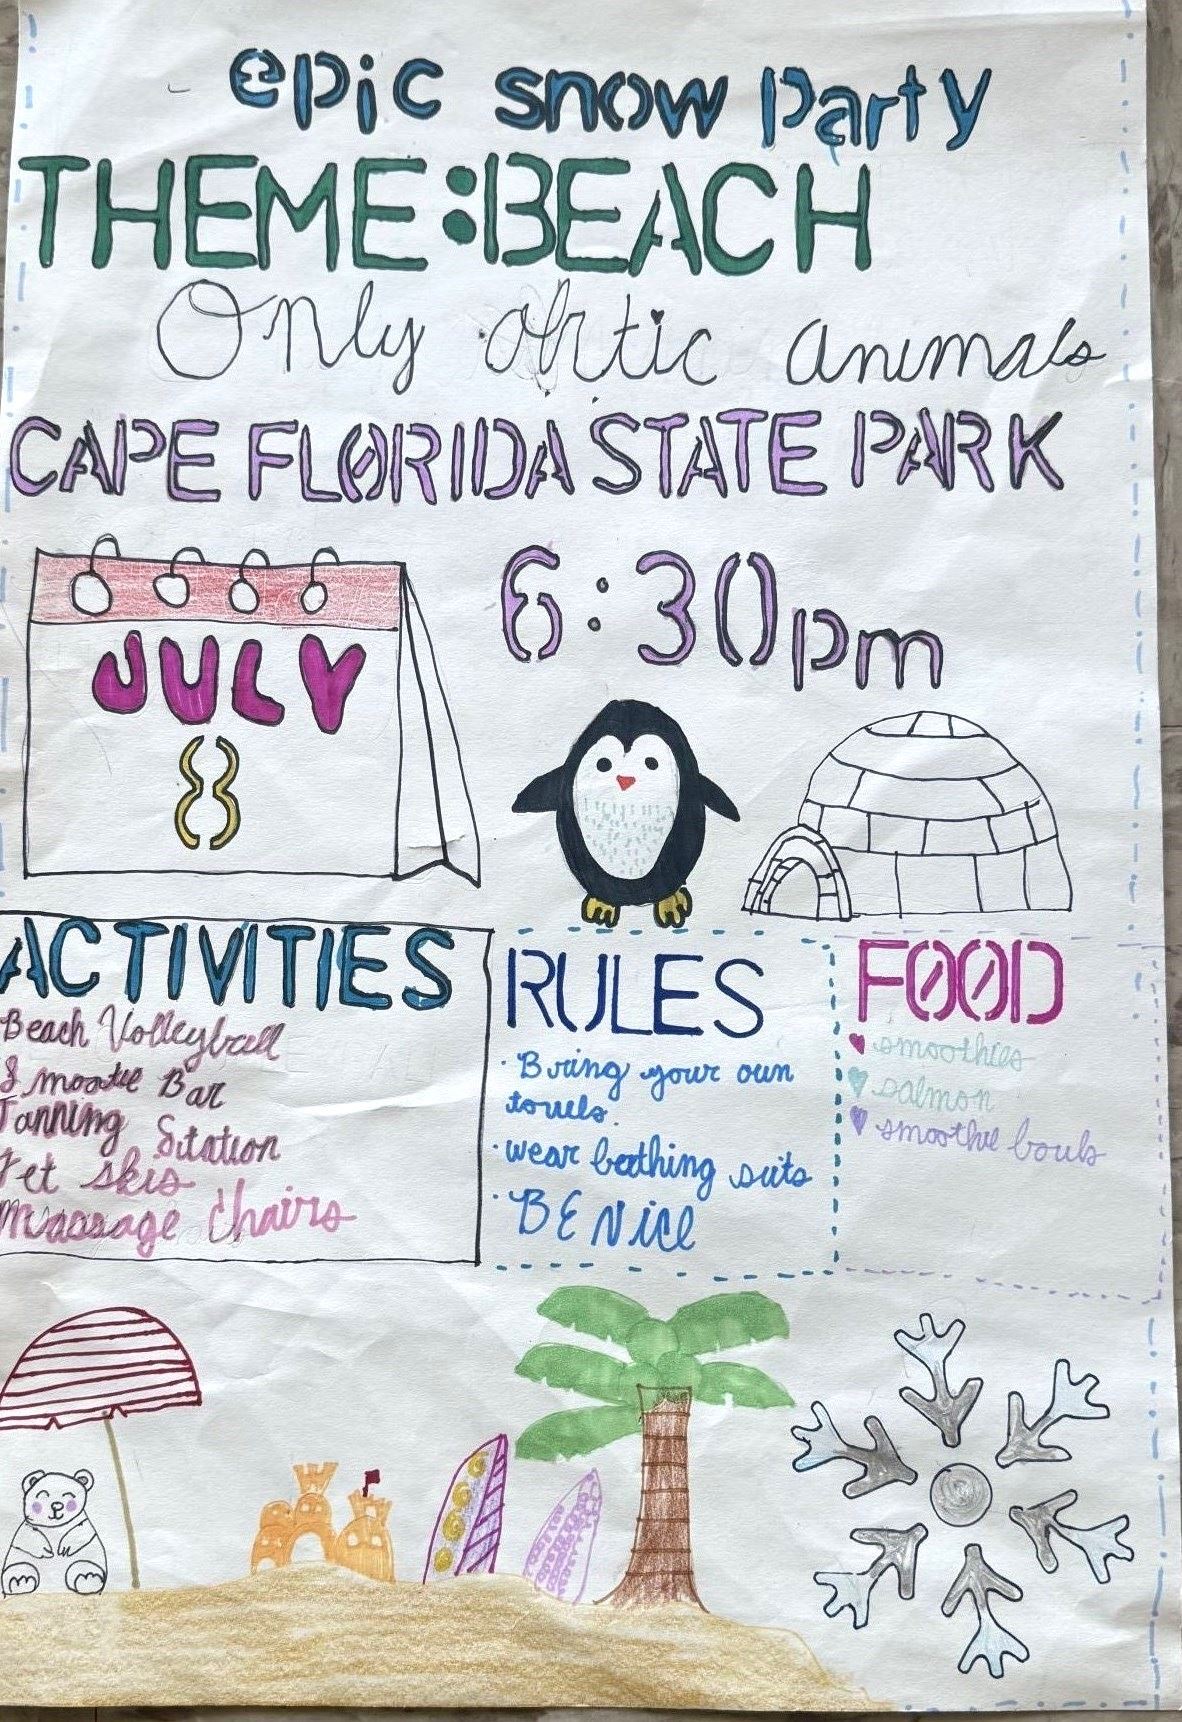 epic snow party
THEME:BEACH
Only Artic animals
CAPE FLORIDA STATE PARK
6:30pm
JULY
8
ACTIVITIES
Beach Volleyball
Smootie Bar
Tanning Station
Jet skis
Massage Chairs
RULES
· Bring your own
towels.
· wear bathing suits
· BE Nice
FOOD
smoothies
salmon
smoothie bowls